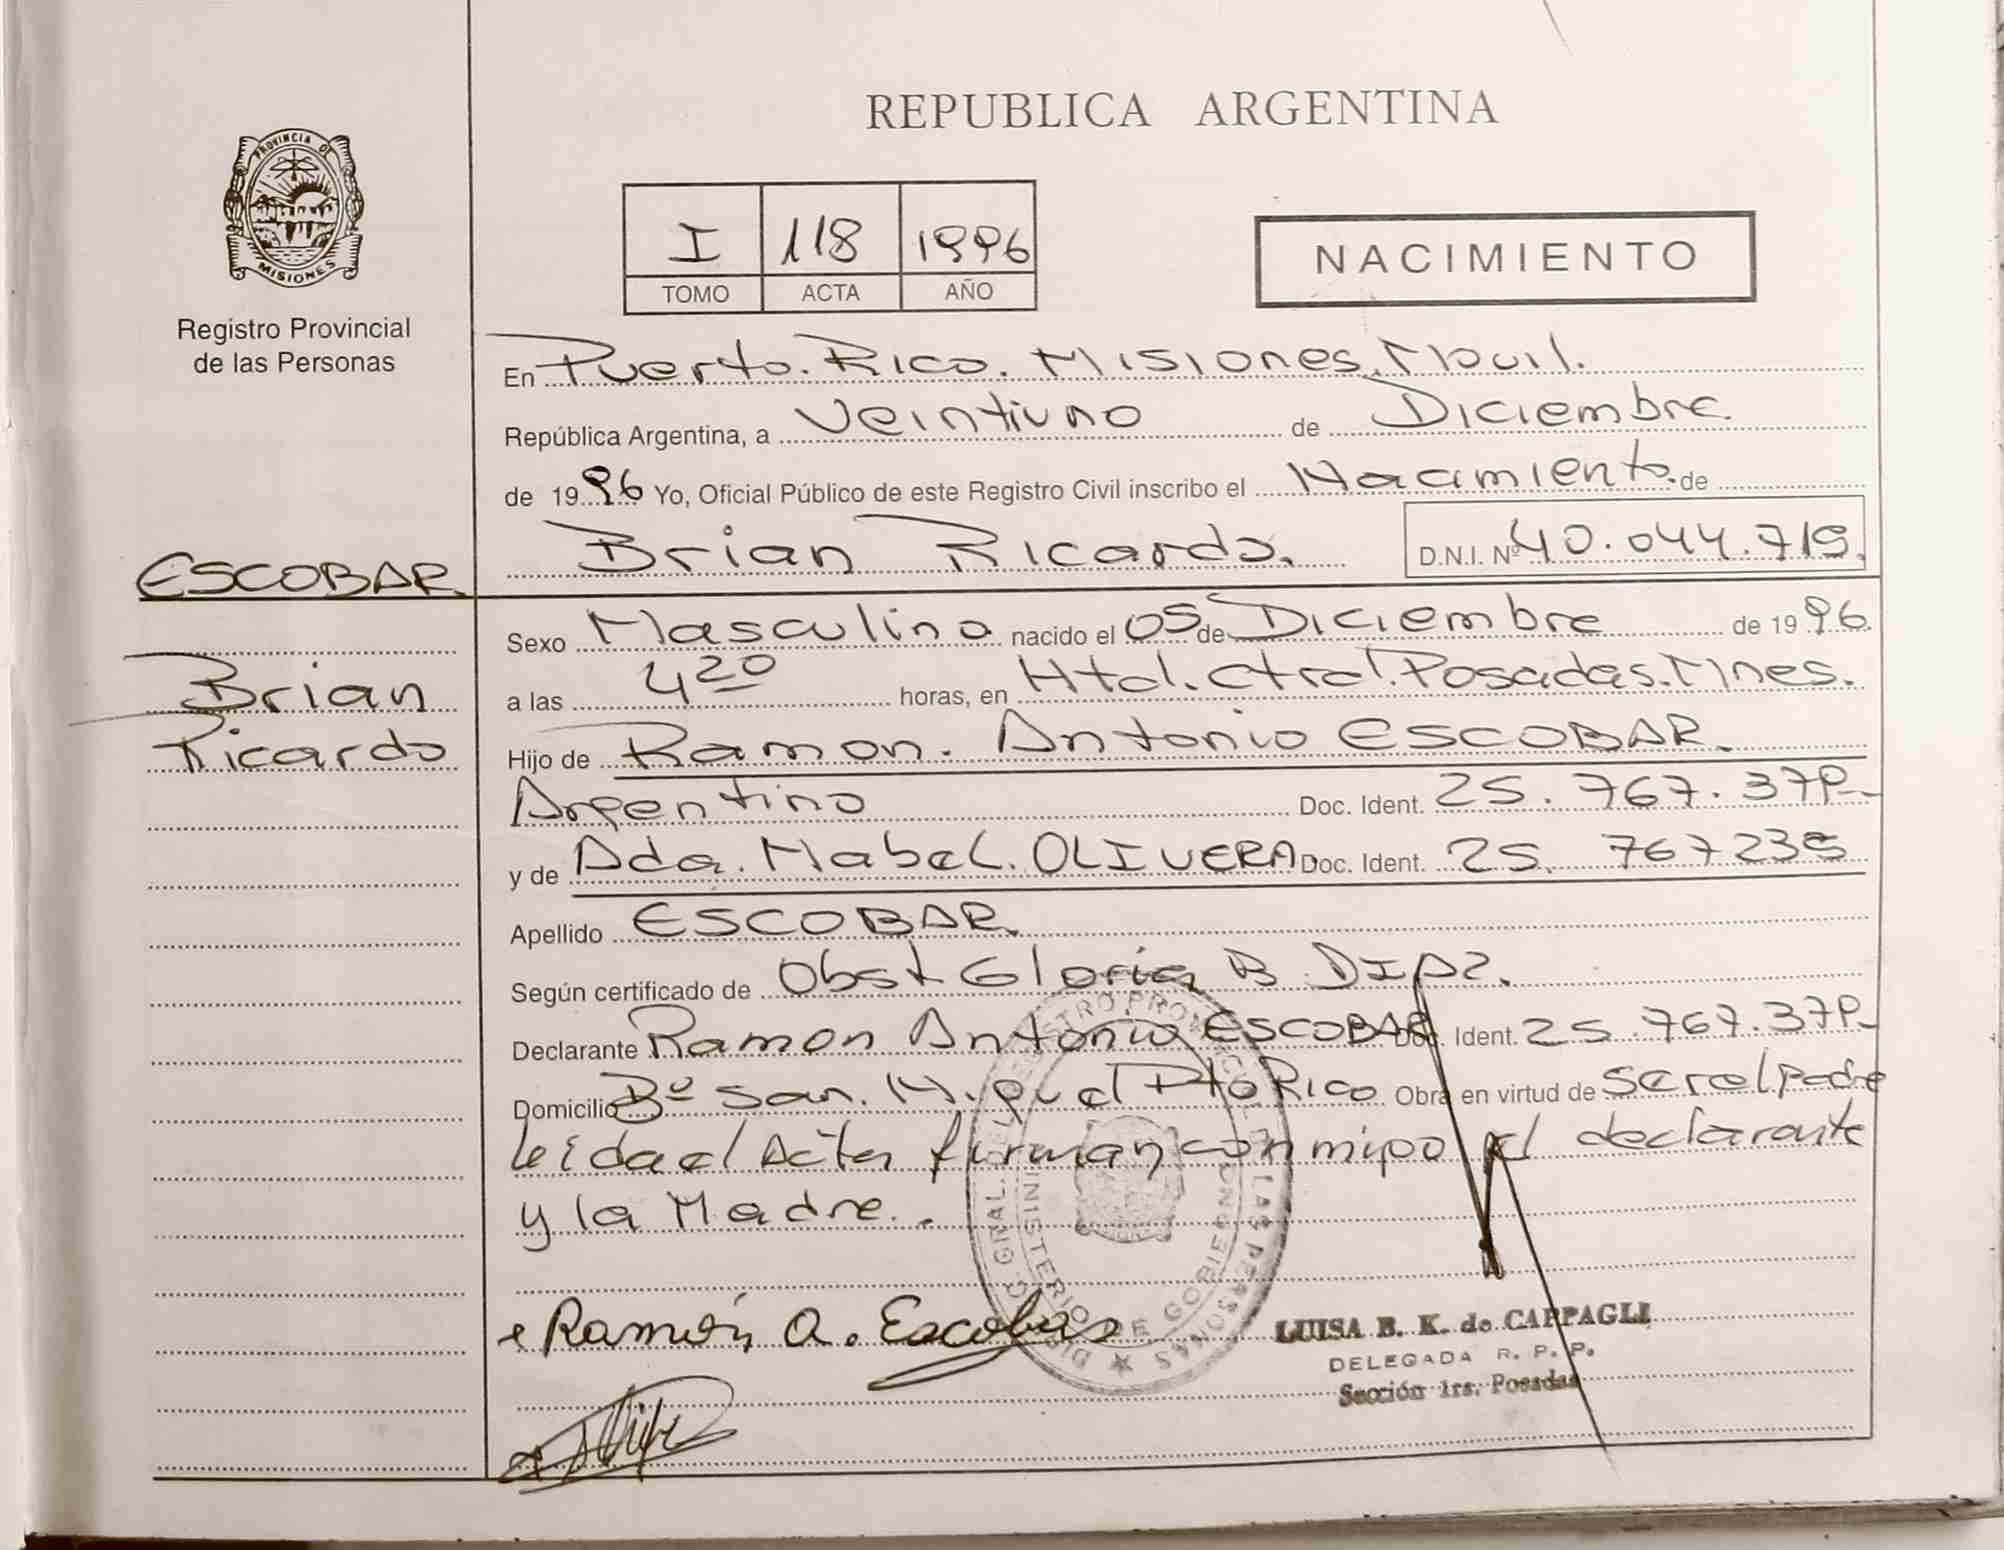 REPUBLICA ARGENTINA
PROVINCIA DE MISIONES
Registro Provincial
de las Personas
I 118 1996
TOMO ACTA AÑO
NACIMIENTO
En Puerto. Rico. Misiones. Movil.
República Argentina, a Veintiuno de Diciembre
de 1996 Yo, Oficial Público de este Registro Civil inscribo el Nacimiento. de
Brian Ricardo. D.N.I. Nº 40.044.719.
ESCOBAR
Brian
Ricardo
Sexo Masculino nacido el 05 de Diciembre de 1996.
a las 4 20 horas, en Htal. Ctral. Posadas. Mnes.
Hijo de Ramon. Antonio ESCOBAR.
Argentino Doc. Ident. 25.767.379-
y de Ada. Mabel. OLIVERA Doc. Ident. 25. 767 239
Apellido ESCOBAR.
Según certificado de Obst Gloria B. DIAZ.
Declarante Ramon Antonio ESCOBAR Doc. Ident. 25.767.379-
Domicilio Bº San. Miguel Pto Rico Obra en virtud de ser el padre
Leida el Acta firman conmigo el declarante
y la Madre.
Ramón A. Escobar
DIREC. GRAL. DEL REGISTRO PROVINCIAL DE LAS PERSONAS
MINISTERIO DE GOBIERNO
LUISA B. K. de CAPPAGLI
DELEGADA R. P. P.
Sección 1ra. Posadas